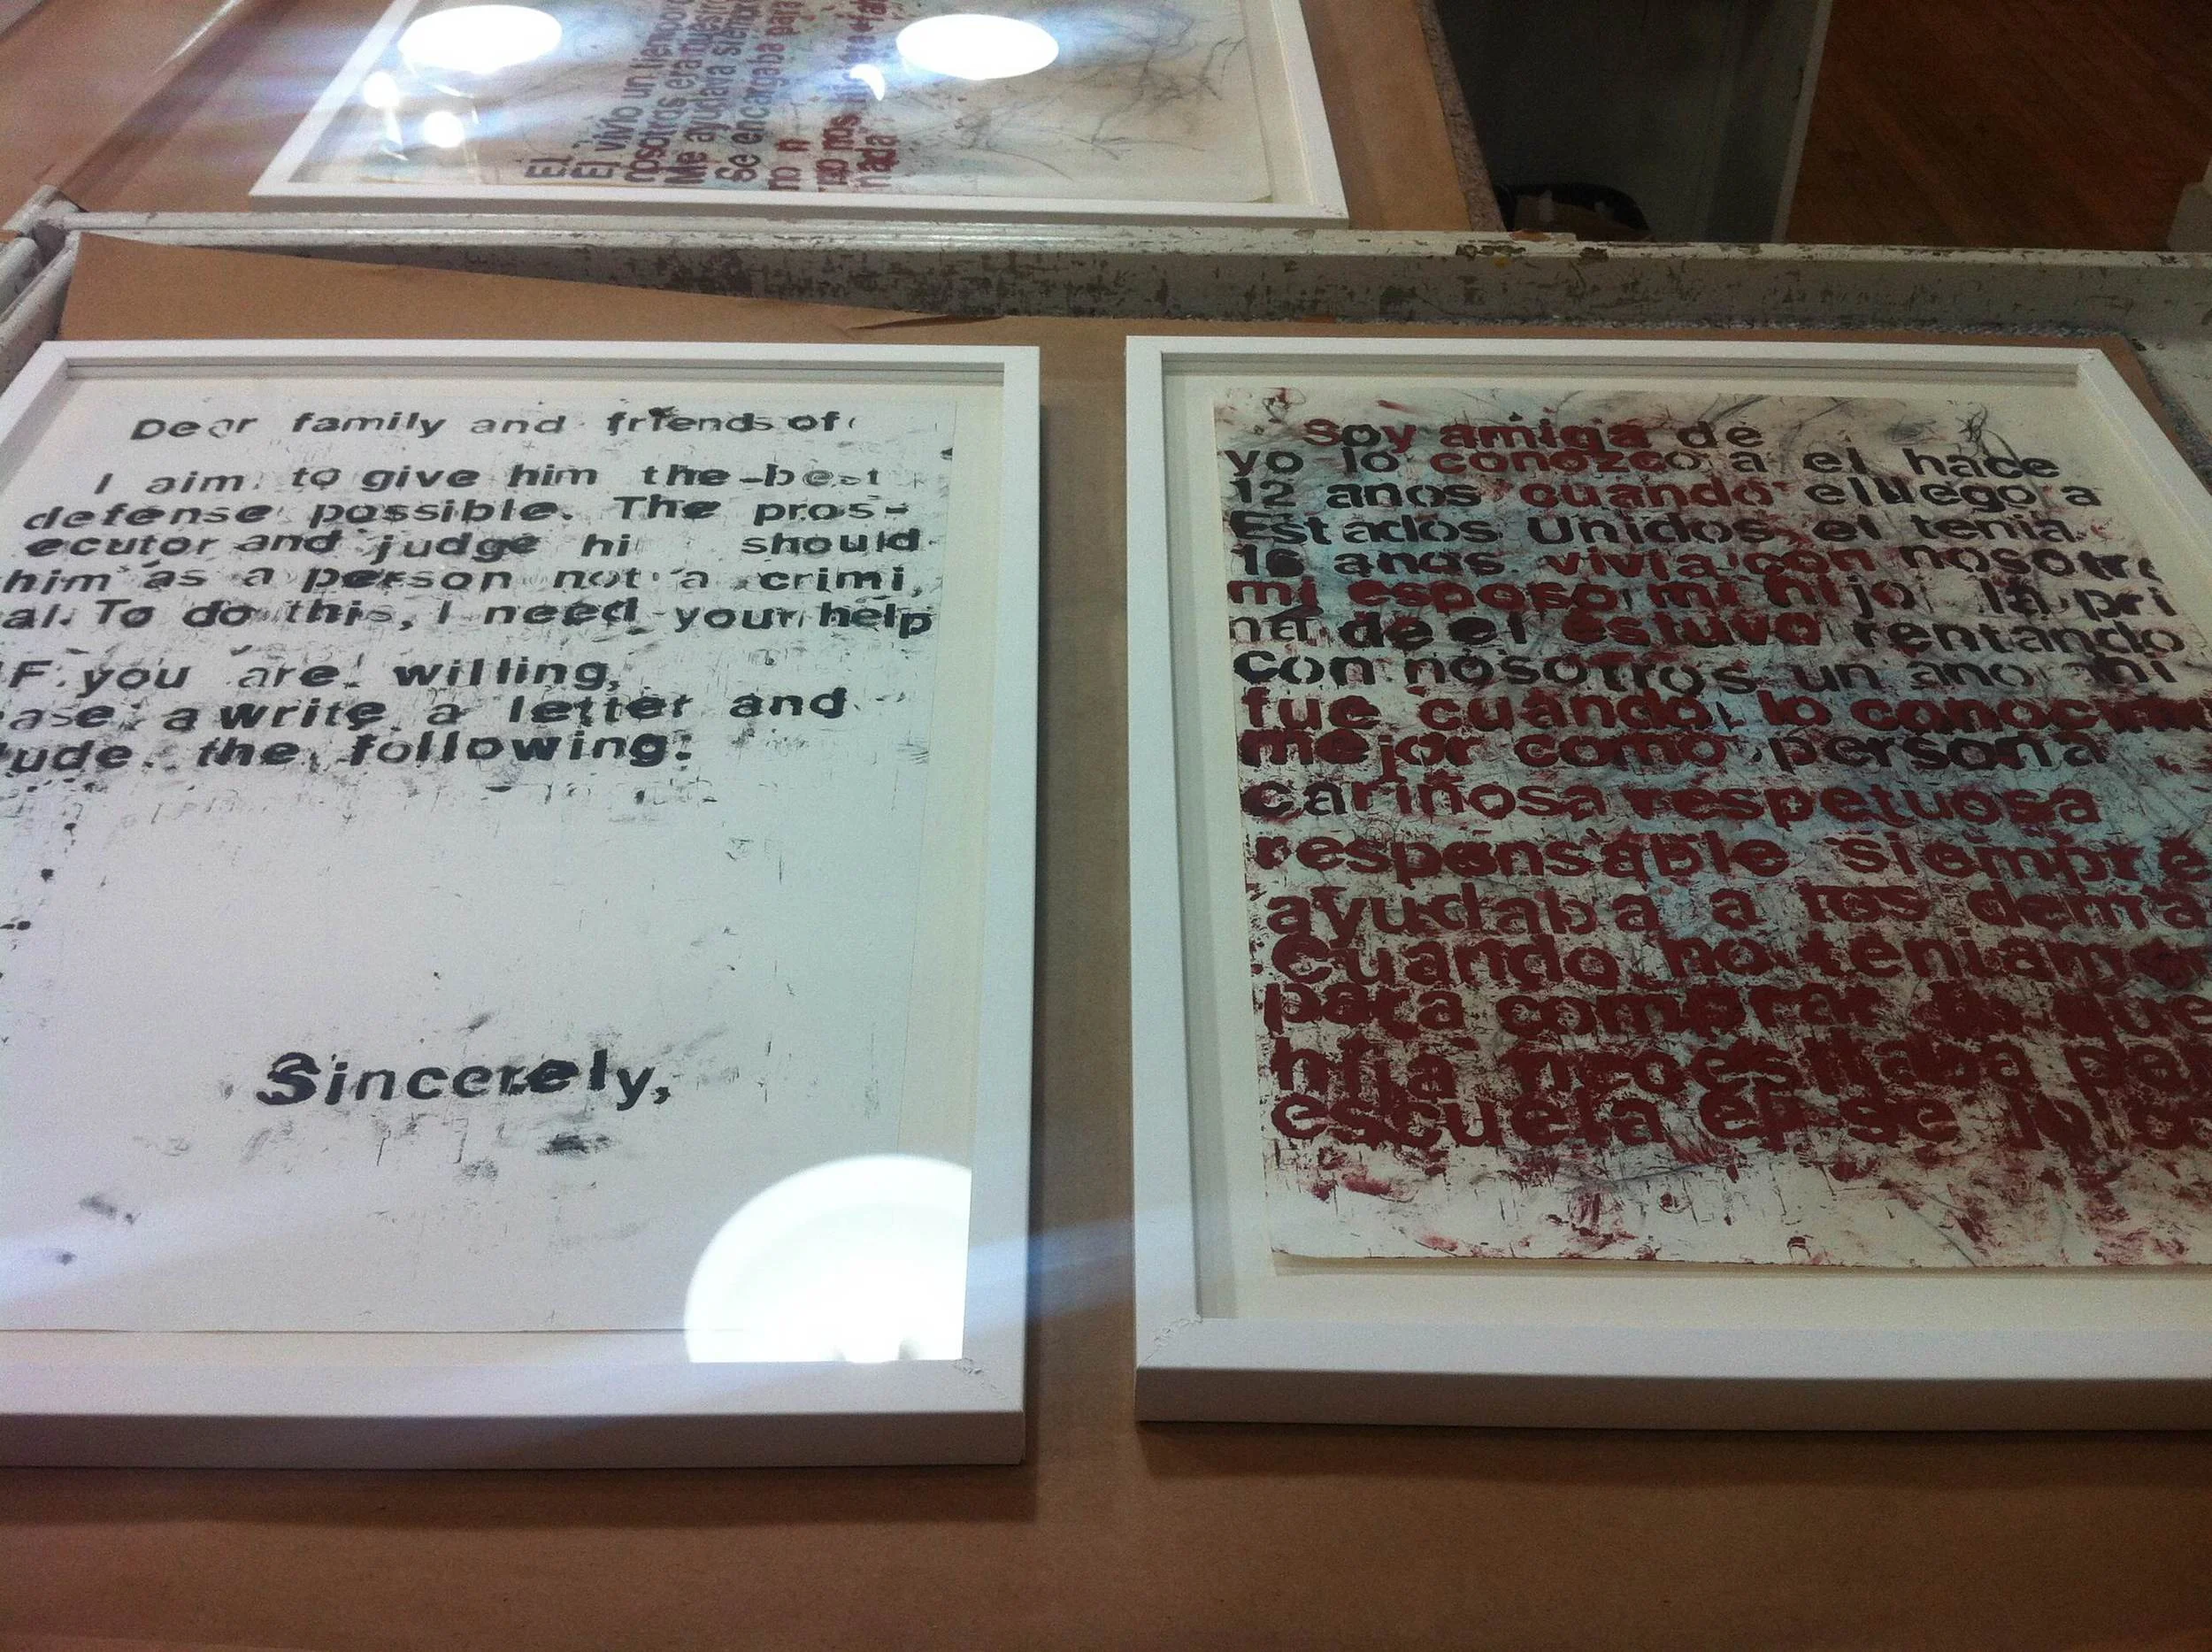 El
El vivio un tiempo
nosotros era nuestro
Me ayudava siempre
Se encargaba para
no n
no nos hi
nada
Dear family and friends of
I aim to give him the best
defense possible. The pros-
ecutor and judge hi should
him as a person not a crimi
al. To do this, I need your help
F you are willing,
ase a write a letter and
ude the following:
Sincerely,
Soy amiga de
yo lo conozco a el hace
12 anos cuando el llego a
Estados Unidos el tenia
16 anos vivia con nosotr
mi esposo mi hijo la pri
ma de el estuvo rentando
con nosotros un ano ahi
fue cuando lo conoci
mejor como persona
cariñosa respetuosa
responsable siempre
ayudaba a los dema
Cuando no teniam
para comprar lo que
hija necesitaba par
escuela el se lo co